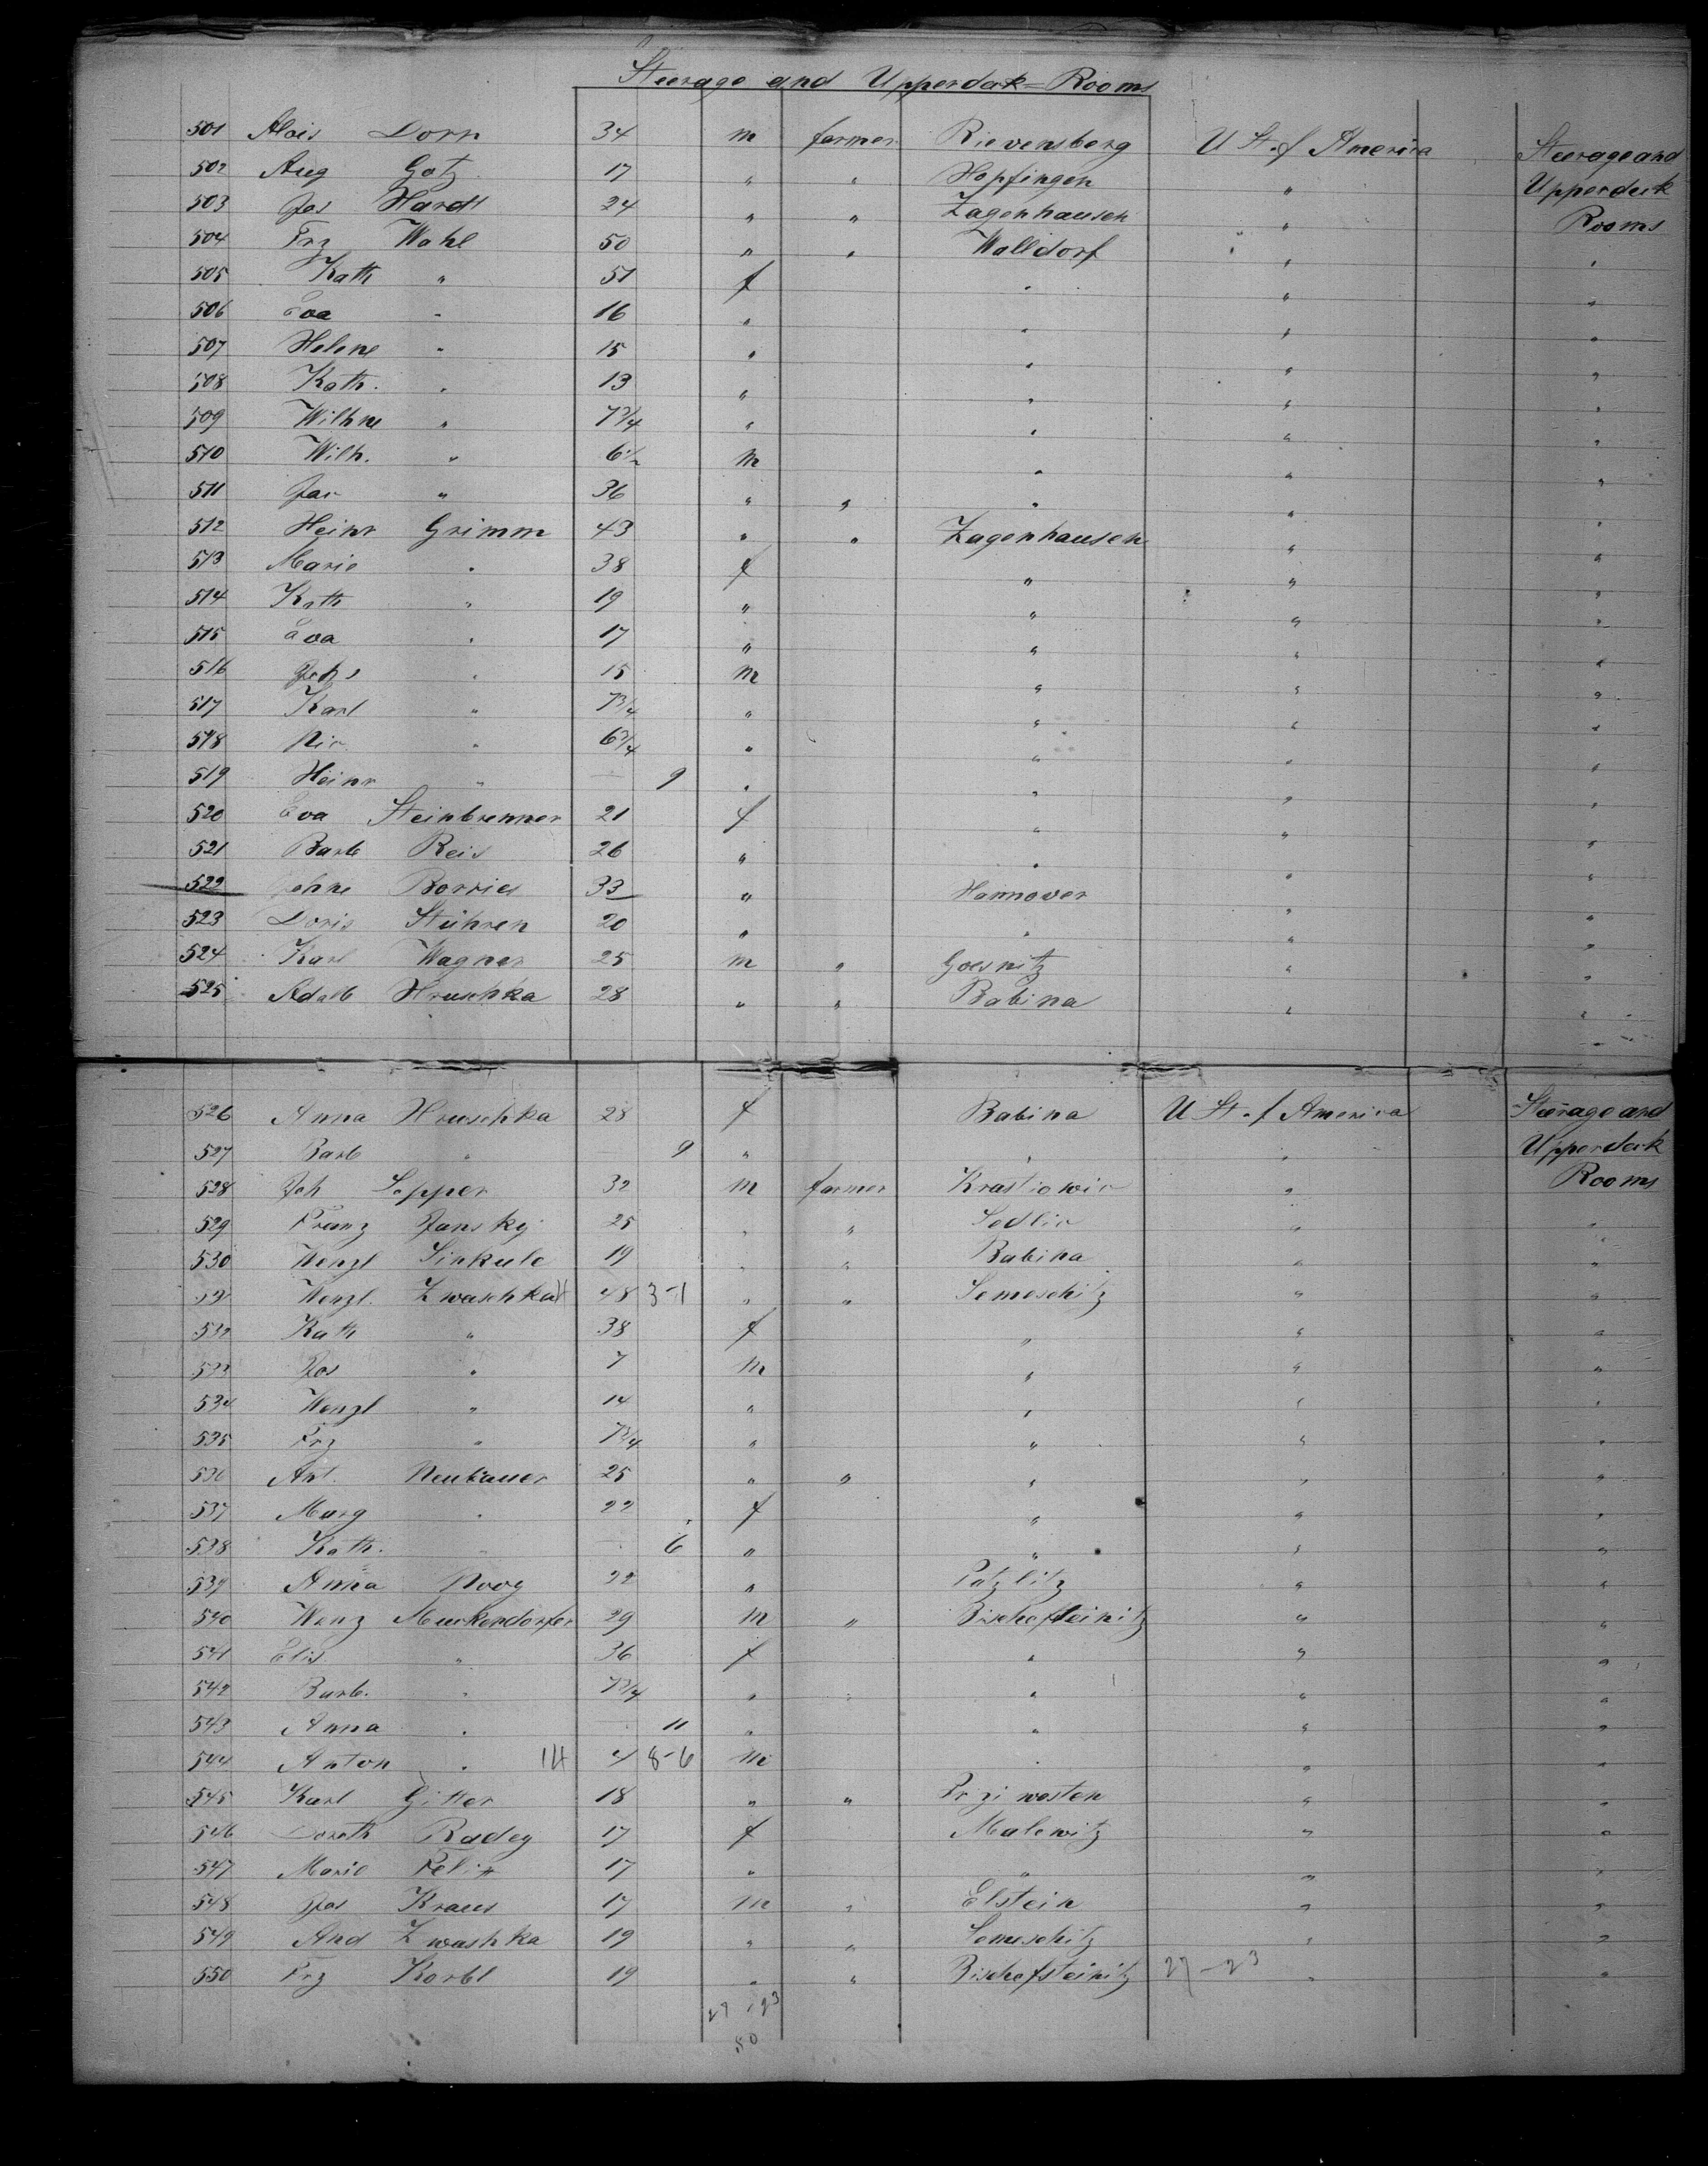 Steerage and Upperdek=Rooms
501 Alois Dorn 34 m farmer Rievensberg U St. of America Steerage and
502 Aug Götz 17 " " Hopfingen " Upperdeck
503 Jos Hardt 24 " " Zagenhausen " Rooms
504 Frz Wahl 50 " " Walldorf " "
505 Kath " 51 f " " "
506 Eva " 16 " " " "
507 Helene " 15 " " " "
508 Kath. " 13 " " " "
509 Wilhne " 7 3/4 " " " "
510 Wilh. " 6 1/2 m " " "
511 Jac " 36 " " " " "
512 Heinr Grimm 43 " " Zagenhausen " "
513 Marie " 38 f " " "
514 Kath " 19 " " " "
515 Eva " 17 " " " "
516 Johs " 15 m " " "
517 Karl " 7 3/4 " " " "
518 Nic " 6 3/4 " " " "
519 Heinr " 9 " " " "
520 Eva Steinbrenner 21 f " " "
521 Barb Reis 26 " " " "
522 Johne Borries 33 " Hannover " "
523 Doris Stühren 20 " " " "
524 Karl Wagner 25 m " Goesnitz " "
525 Adalb Hruschka 28 " " Babina " "
526 Anna Hruschka 28 f Babina U St. of America Steerage and
527 Barb " 9 " " " Upperdeck
528 Joh Sopper 32 m farmer Krastiowic " Rooms
529 Franz Jansky 25 " " Sedlic " "
530 Wenzl Sinkule 19 " " Babina " "
531 Wenzl. Zwaschka 48 3-1 " " Semeschitz " "
532 Kath " 38 f " " "
533 Jos " 7 m " " "
534 Wenzl " 14 " " " "
535 Frz " 7 3/4 " " " "
536 Ant. Neubauer 25 " " " " "
537 Marg " 22 f " " "
538 Kath. " 6 " " " "
539 Anna Noog 22 " Patzlitz " "
540 Wenz Muckendorfer 29 m " Bischofteinitz " "
541 Elis " 36 f " " "
542 Barb. " 7 3/4 " " " "
543 Anna " 11 " " " "
544 Anton " 14 4 8-6 m " " "
545 Karl Gitter 18 " " Przi westen " "
546 Doroth Radey 17 f Malewitz " "
547 Marie Felix 17 " " " "
548 Jos Kraus 17 m " Elstein " "
549 And Zwashka 19 " " Semeschitz " "
550 Frz Korbl 19 " " Bischofsteinitz 27-23 " "
27 / 23
50